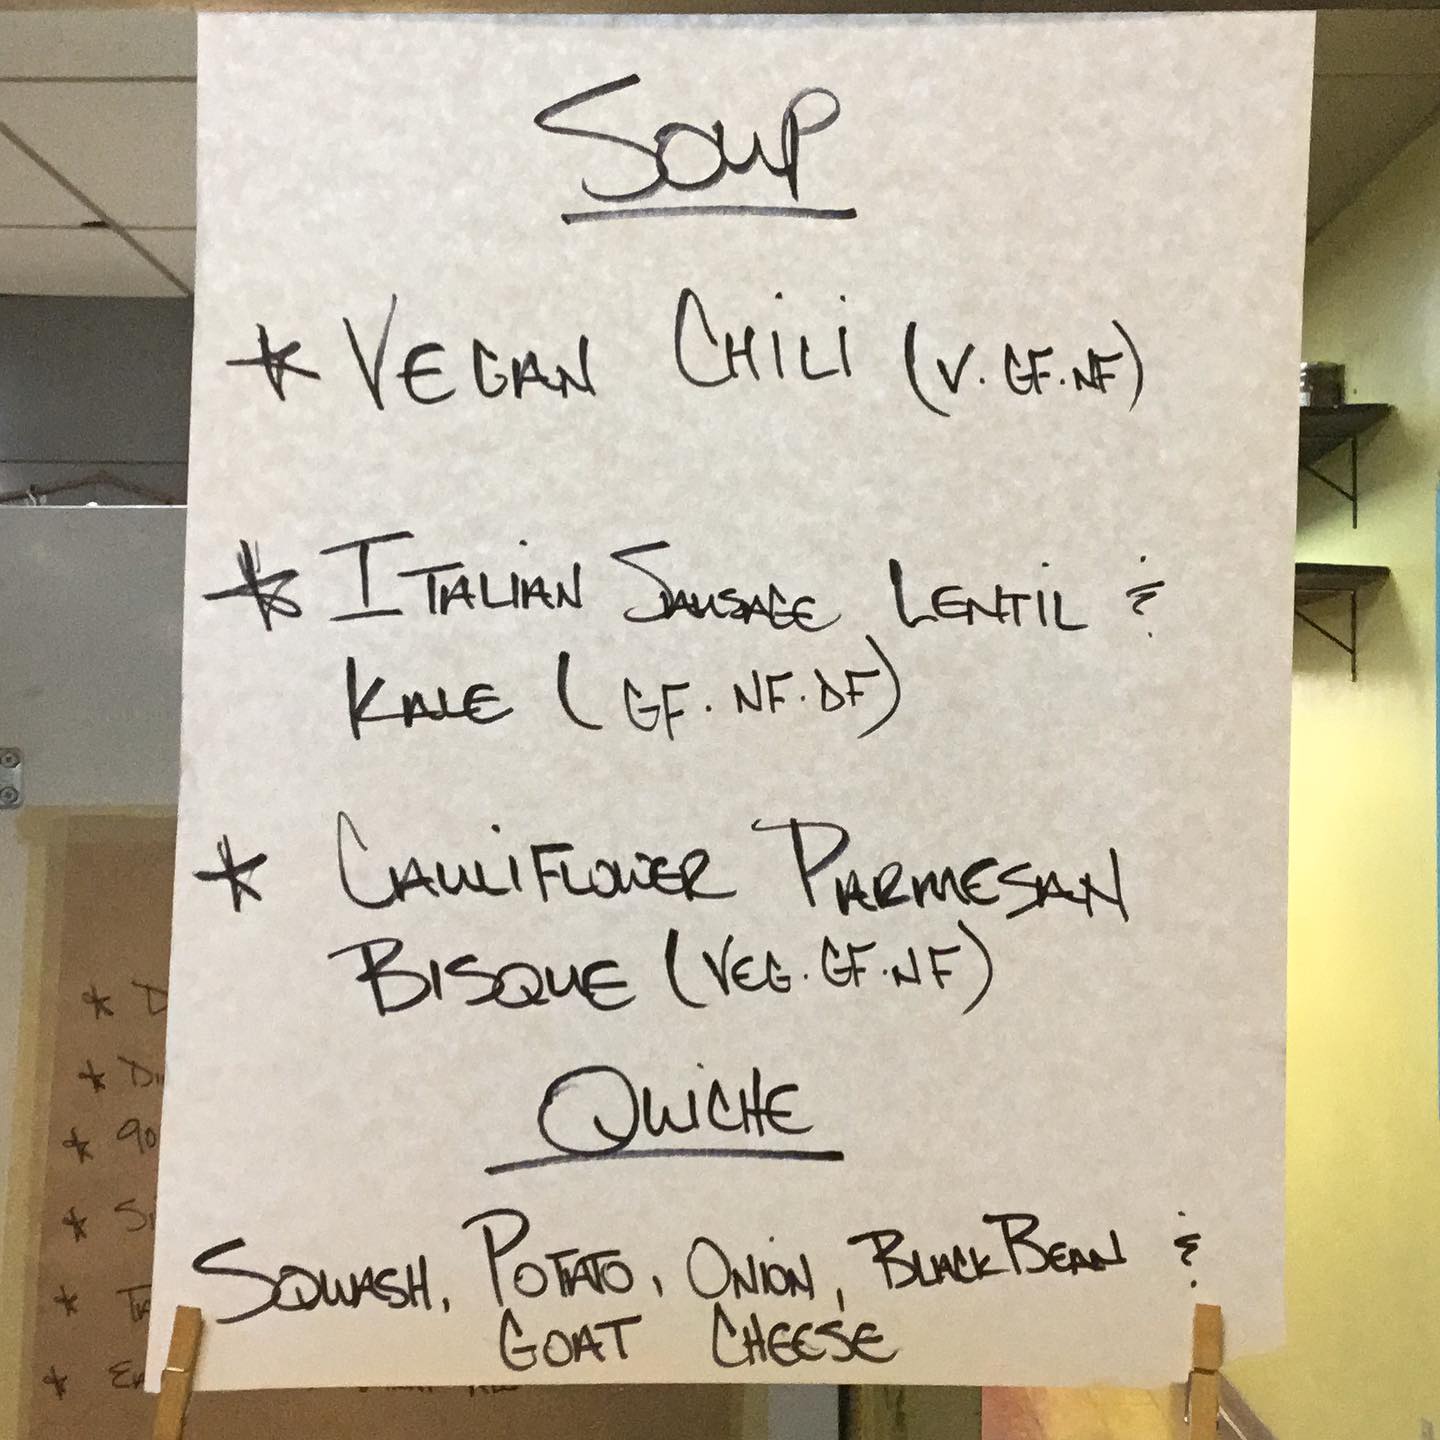 Soup
* Vegan Chili (V. GF. NF)
* Italian Sausage, Lentil &
Kale (GF. NF. DF)
* Cauliflower Parmesan
Bisque (Veg. GF. NF)
Quiche
Squash, Potato, Onion, Black Bean &
Goat Cheese
* 90